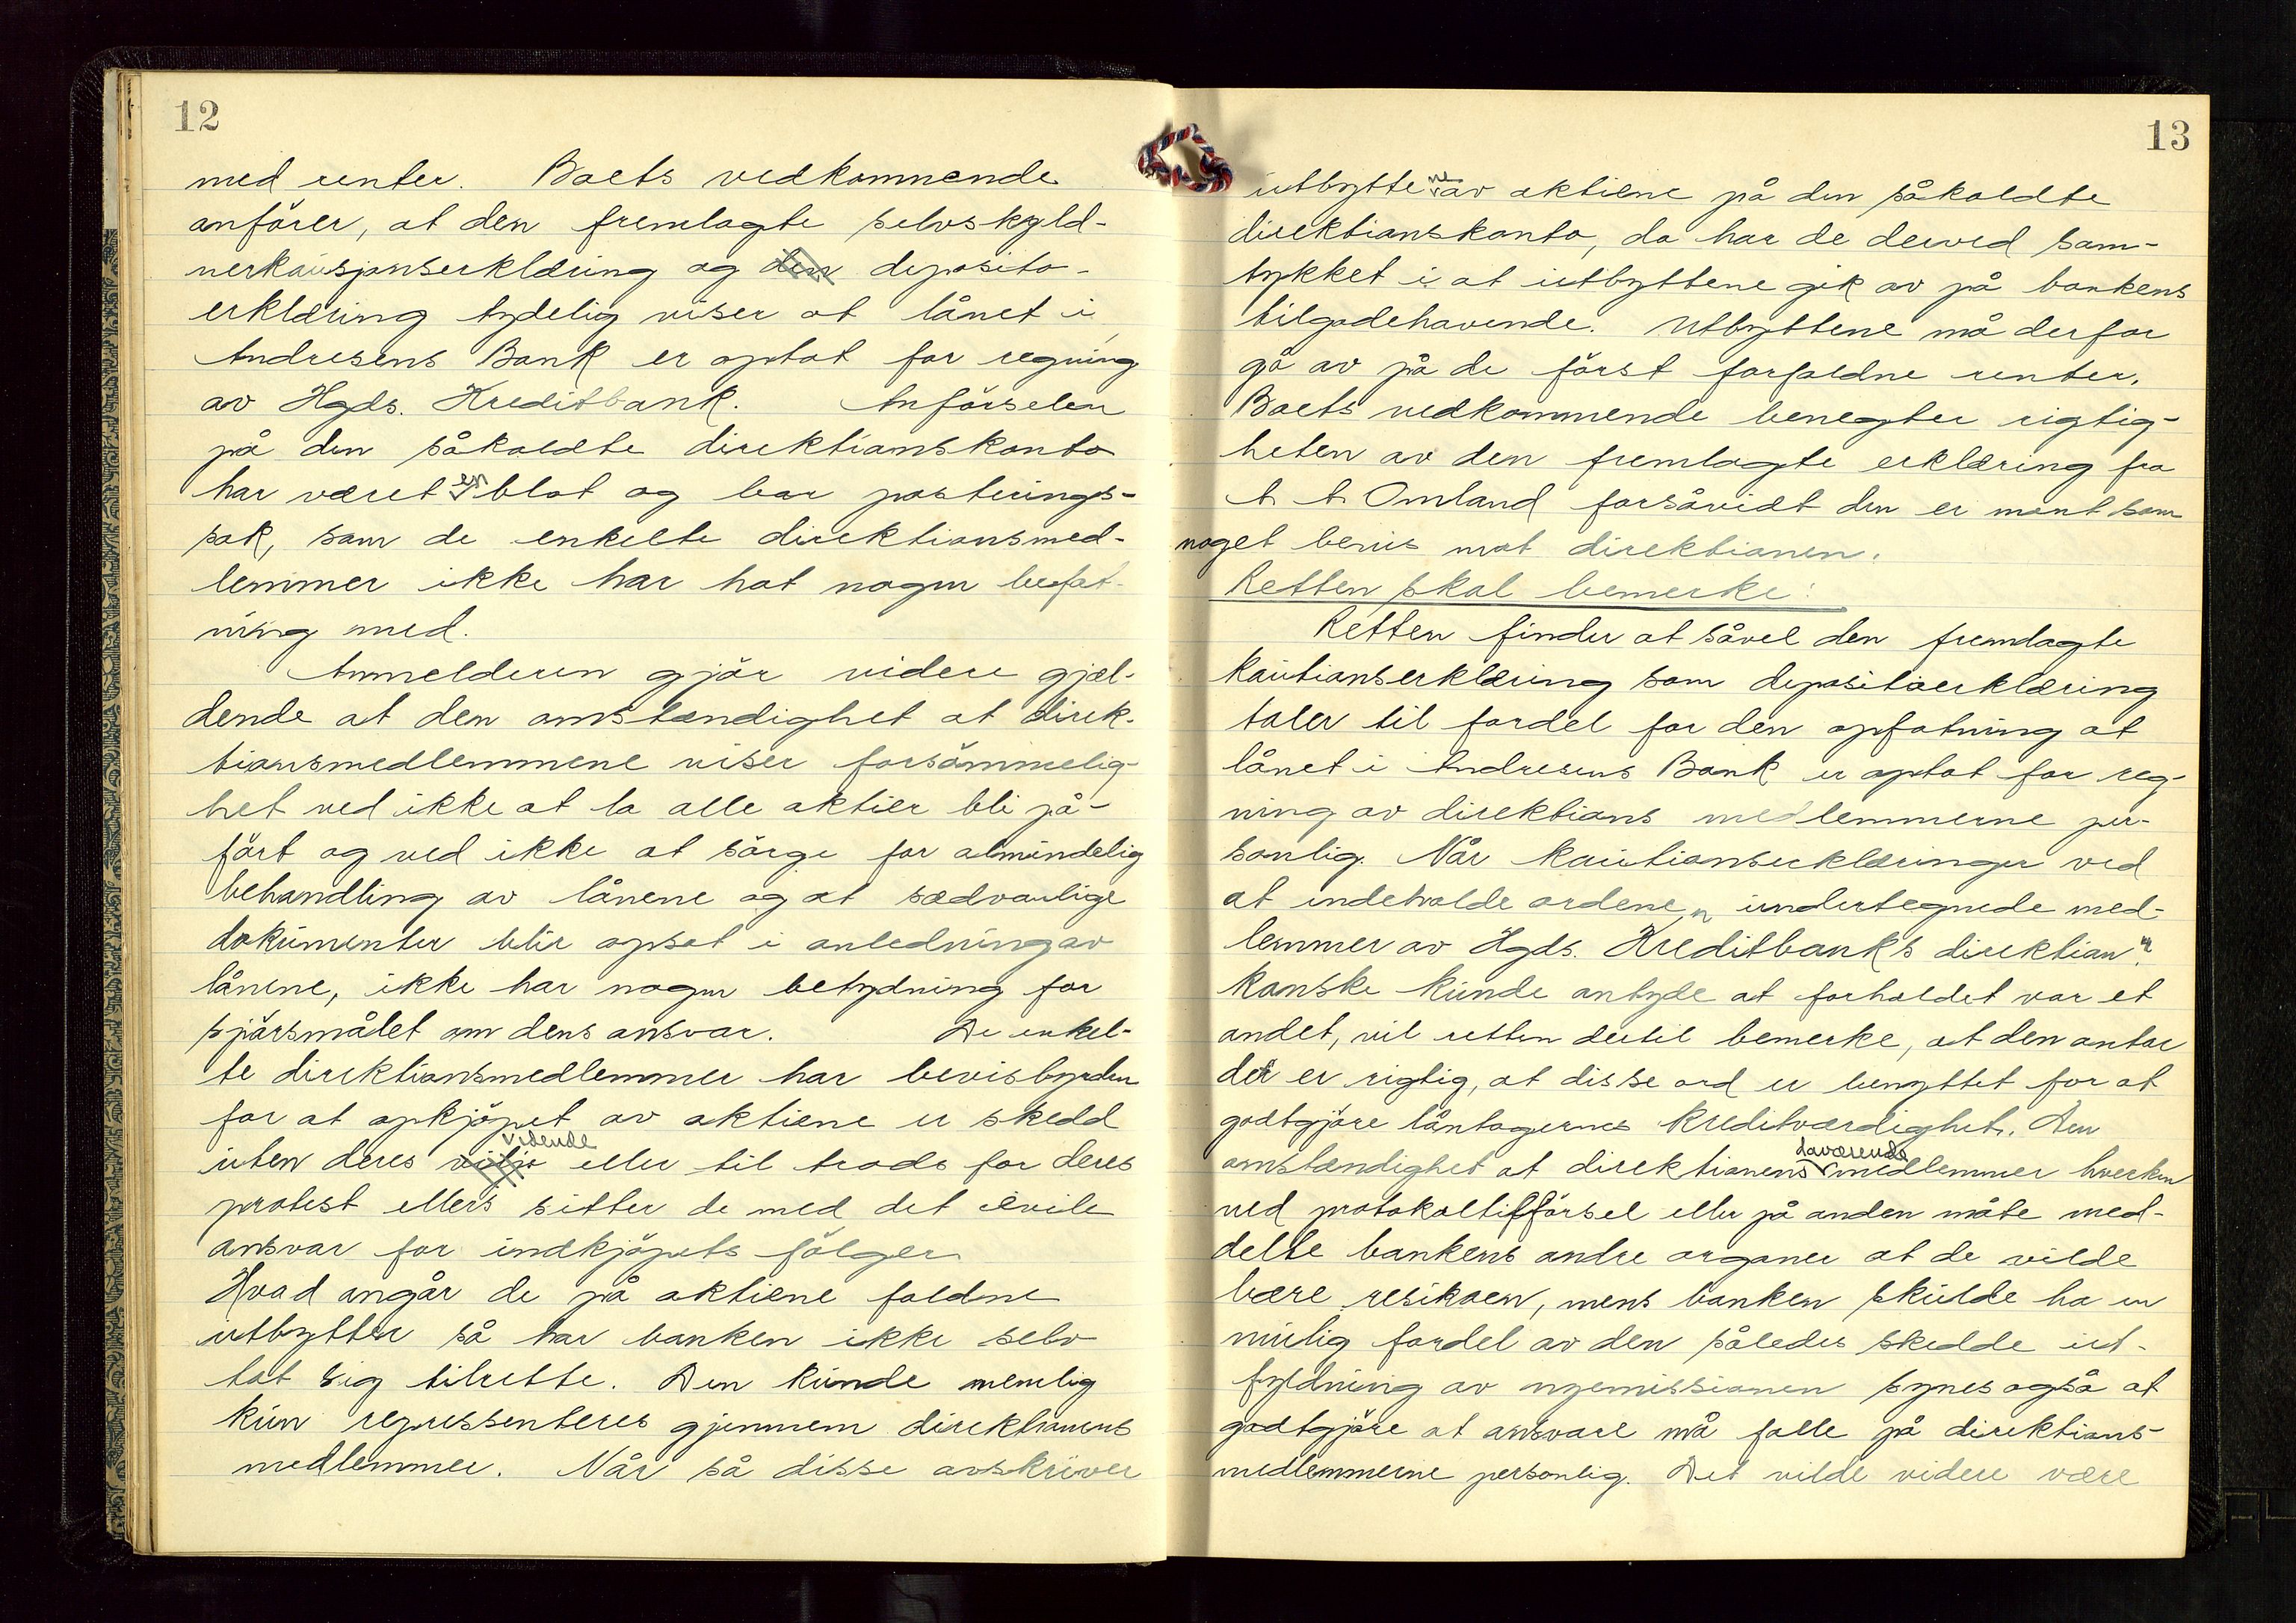 12
med renter. Boets vedkommende
anförer, at den fremlagte selvskyld-
nerkausjonserklæring og den deposito-
erklæring tydelig viser at lånet i
Andresens Bank er optat for regning
av Hgds. Kreditbank. Anförselen
på den såkaldte direktionskonto
har været en blot og bar posterings-
sak, som de enkelte direktionsmed-
lemmer ikke har hat nogen befat-
ning med.
Anmelderen gjör videre gjæl-
dende at den omstændighet at direk-
tionsmedlemmene viser forsömmelig-
het ved ikke at la alle aktier bli på-
fört og ved ikke at sörge for almindelig
behandling av lånene og at sædvanlige
dokumenter blir opsat i anledning av
lånene, ikke har nogen betydning for
spörsmålet om dens ansvar. De enkel-
te direktionsmedlemmer har bevisbyrden
for at opkjöpet av aktiene er skedd
uten deres vilje vidende eller til trods for deres
protest ellers sitter de med det civile
ansvar for indkjöpets fölger
Hvad angår de på aktiene faldne
utbytter så har banken ikke selv
tat sig tilrette. Den kunde nemlig
kun repressenteres gjennem direktionens
medlemmer. Når så disse avskriver
13
utbyttene av aktiene på den såkaldte
direktionskonto, da har de derved sam-
tykket i at utbyttene gik av på bankens
tilgodehavende. Utbyttene må derfor
gå av på de först forfaldne renter.
Boets vedkommende benegter rigtig-
heten av den fremlagte erklæring fra
A. A. Omland forsåvidt den er ment som
noget bevis mot direktionen.
Retten skal bemerke:
Retten finder at såvel den fremlagte
kautionserklæring som depositoerklæring
taler til fordel for den opfatning at
lånet i Andresens Bank er optat for reg-
ning av direktions medlemmerne per-
sonlig. Når kautionserklæringer ved
at indeholde ordene „undertegnede med-
lemmer av Hgds. Kreditbank's direktion"
kanske kunde antyde at forholdet var et
andet, vil retten dertil bemerke, at den antar
det er rigtig, at disse ord er benyttet for at
godtgjöre låntagernes kreditværdighet. Den
omstændighet at direktionens daværende medlemmer hverken
ved protokoltilförsel eller på anden måte med-
delte bankens andre organer at de vilde
bære resikoen, mens banken skulde ha en
mulig fordel av den således skedde ut-
fyldning av nyemissionen synes også at
godtgjöre at ansvaret må falle på direktions-
medlemmerne personlig. Det vilde videre være